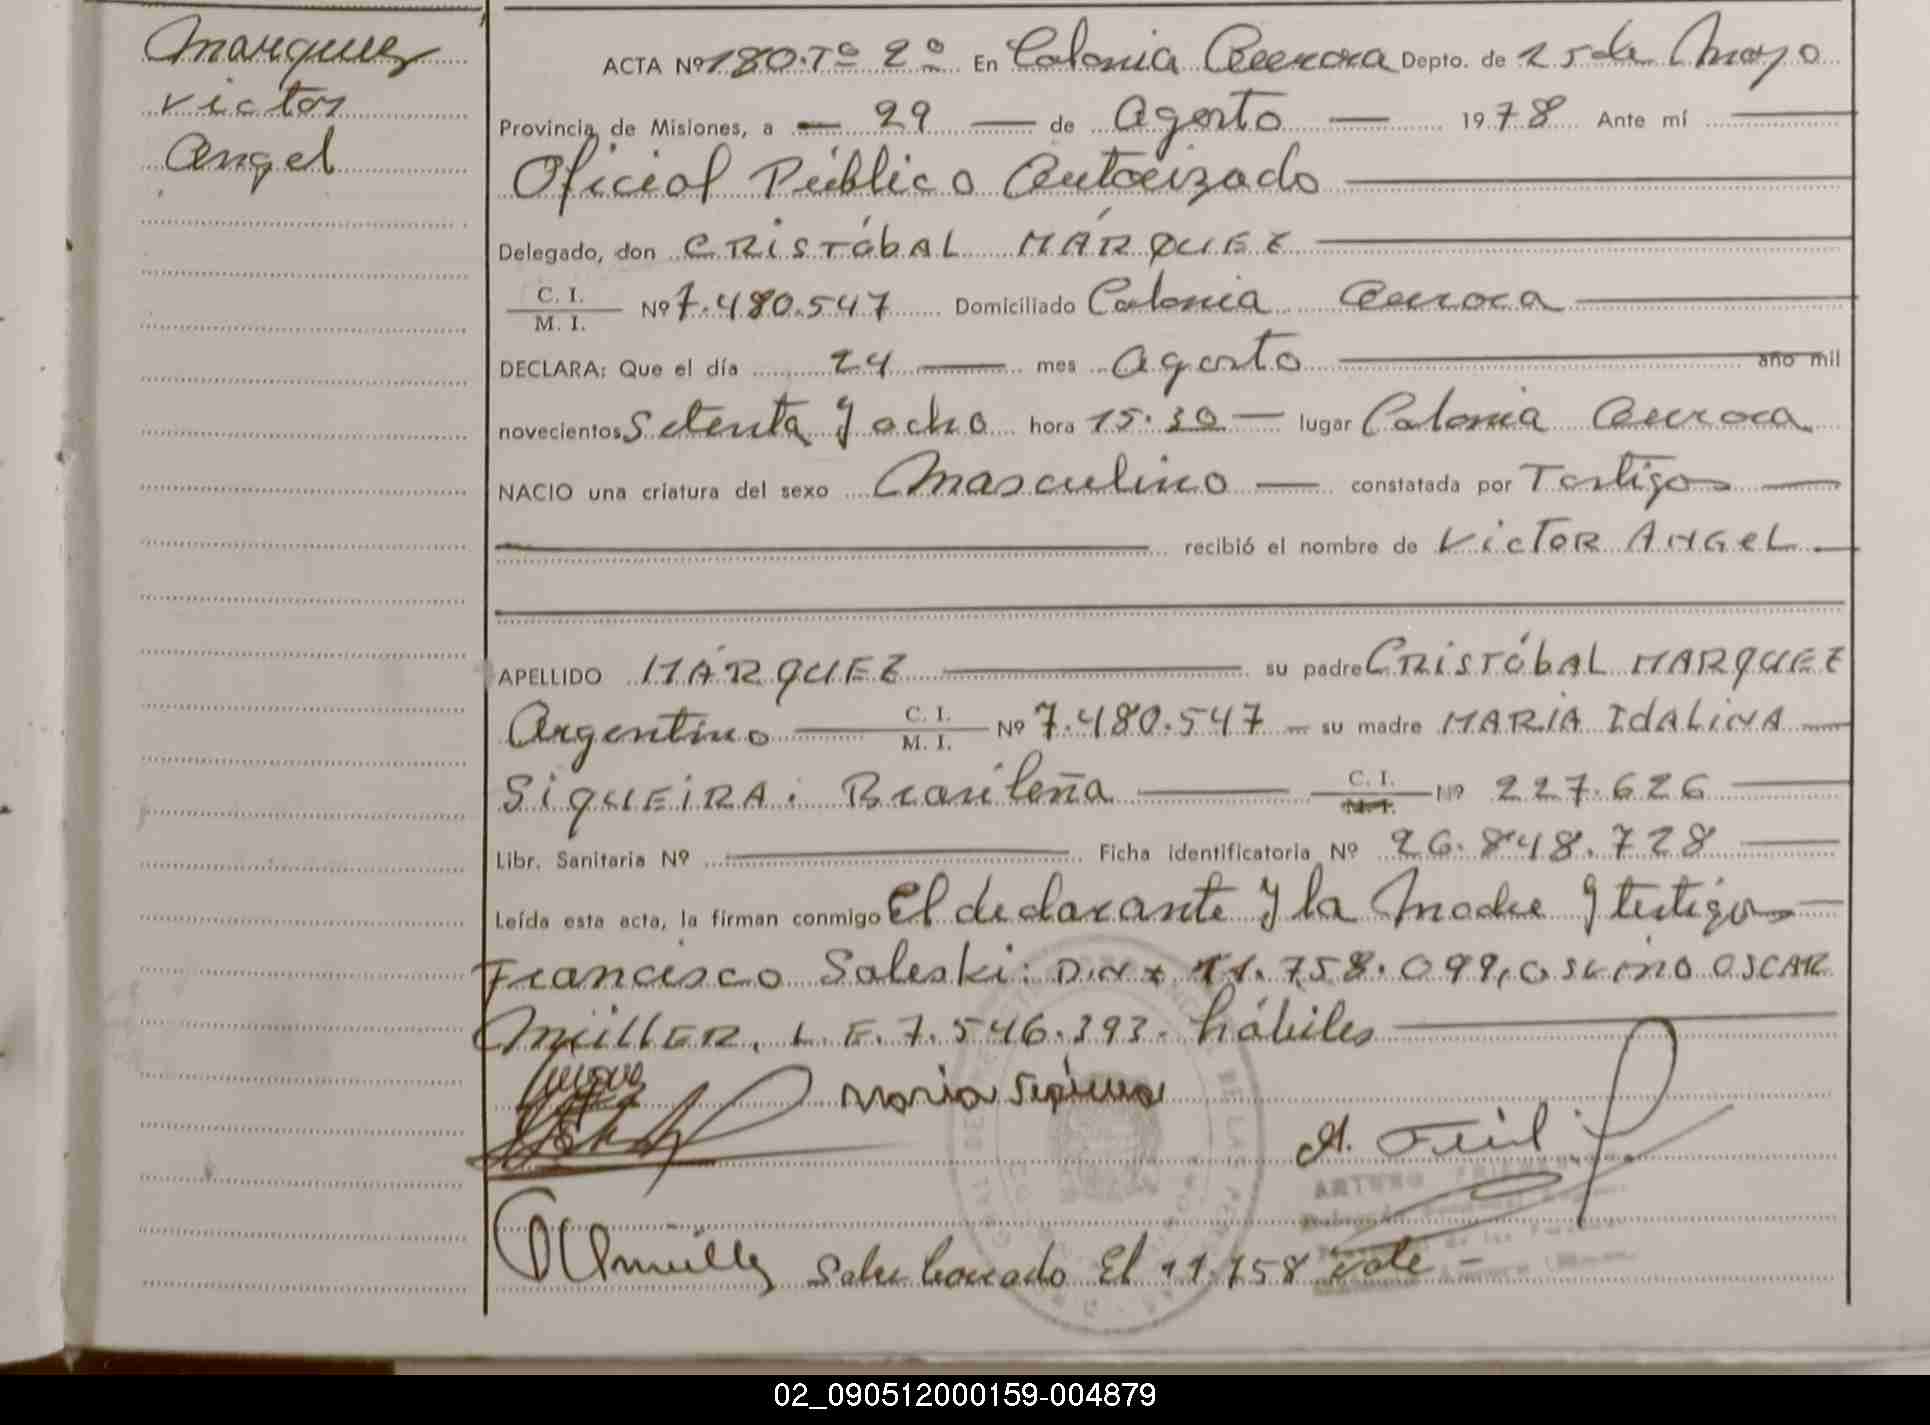 Marquez
Victor
Angel
ACTA Nº 180. Tº 2º En Colonia Aurora Depto. de 25 de Mayo
Provincia de Misiones, a 29 de Agosto 1978 Ante mí
Oficial Público Autorizado
Delegado, don CRISTÓBAL MÁRQUEZ
C. I.
M. I. Nº 7.480.547 Domiciliado Colonia Aurora
DECLARA: Que el día 24 mes Agosto año mil
novecientos Setenta y ocho hora 15.30 lugar Colonia Aurora
NACIO una criatura del sexo Masculino constatada por Testigos
recibió el nombre de VICTOR ANGEL
APELLIDO MÁRQUEZ su padre CRISTÓBAL MARQUEZ
Argentino C. I. M. I. Nº 7.480.547 su madre MARIA IDALINA
SIQUEIRA: Brasileña C. I. M. I. Nº 227.626
Libr. Sanitaria Nº Ficha identificatoria Nº 26.848.728
Leída esta acta, la firman conmigo El declarante y la Madre y testigos
Francisco Saleski: D.N.I. 11.758.099, OSVINO OSCAR
MÜLLER. L.E. 7.546.393. hábiles
Maria Siqueira
A.
ARTURO
Sobre borrado El 11.758 vale -
02_090512000159-004879